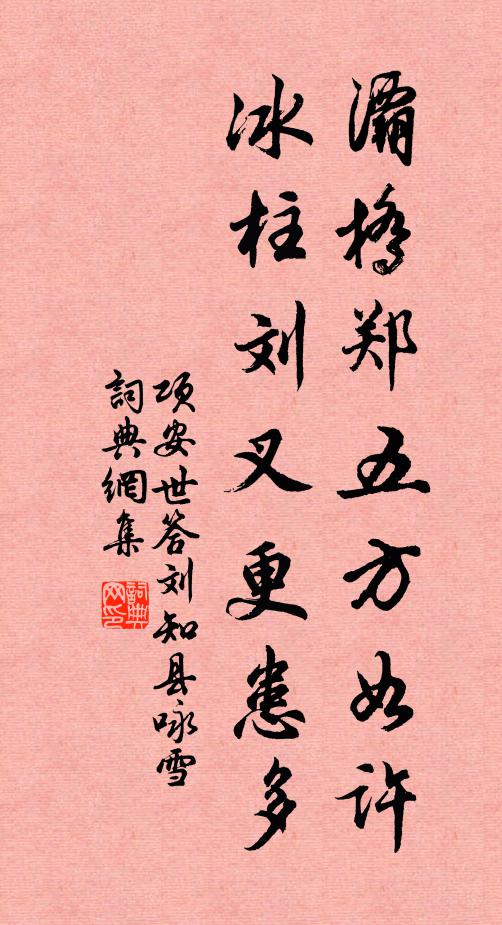 灞橋郑五方如许
冰柱刘叉更患多
项安世答刘知县咏雪
詞典網集
詞典網印